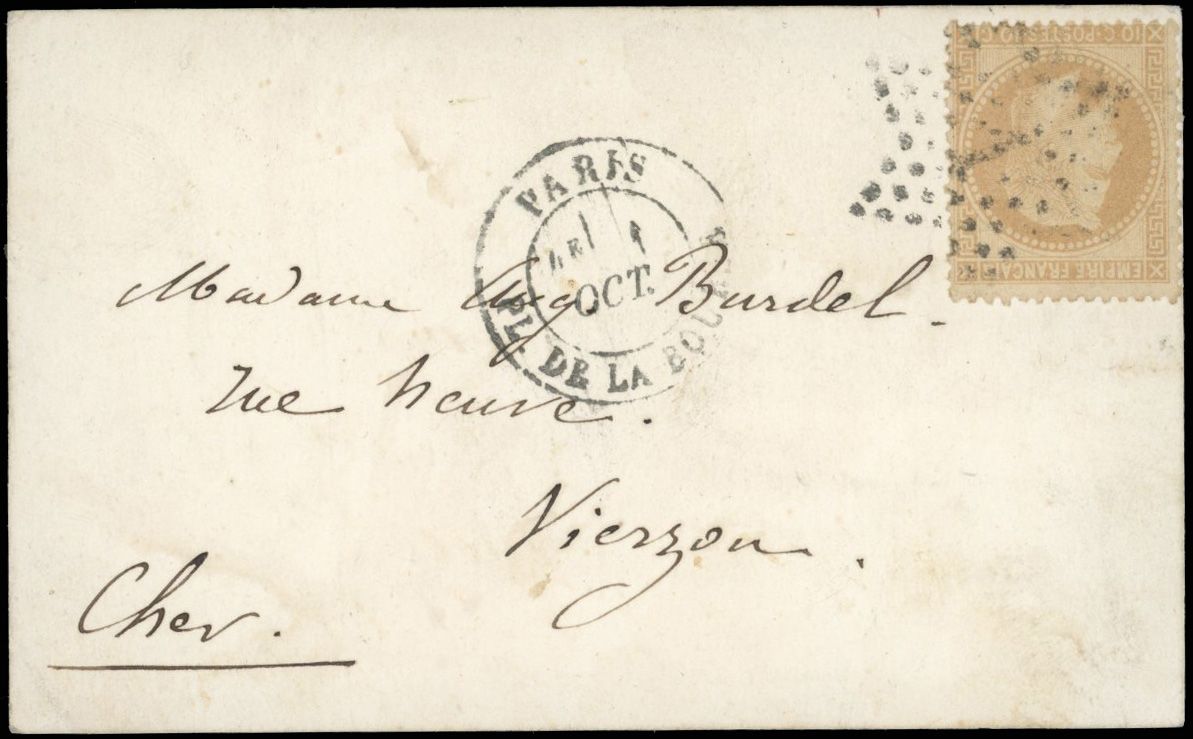 10 C · POSTES · 10 C
EMPIRE FRANÇAIS
PARIS
OCT.
PL. DE LA BOU
Madame Aug. Burdel.
rue neuve.
Vierzon.
Cher.